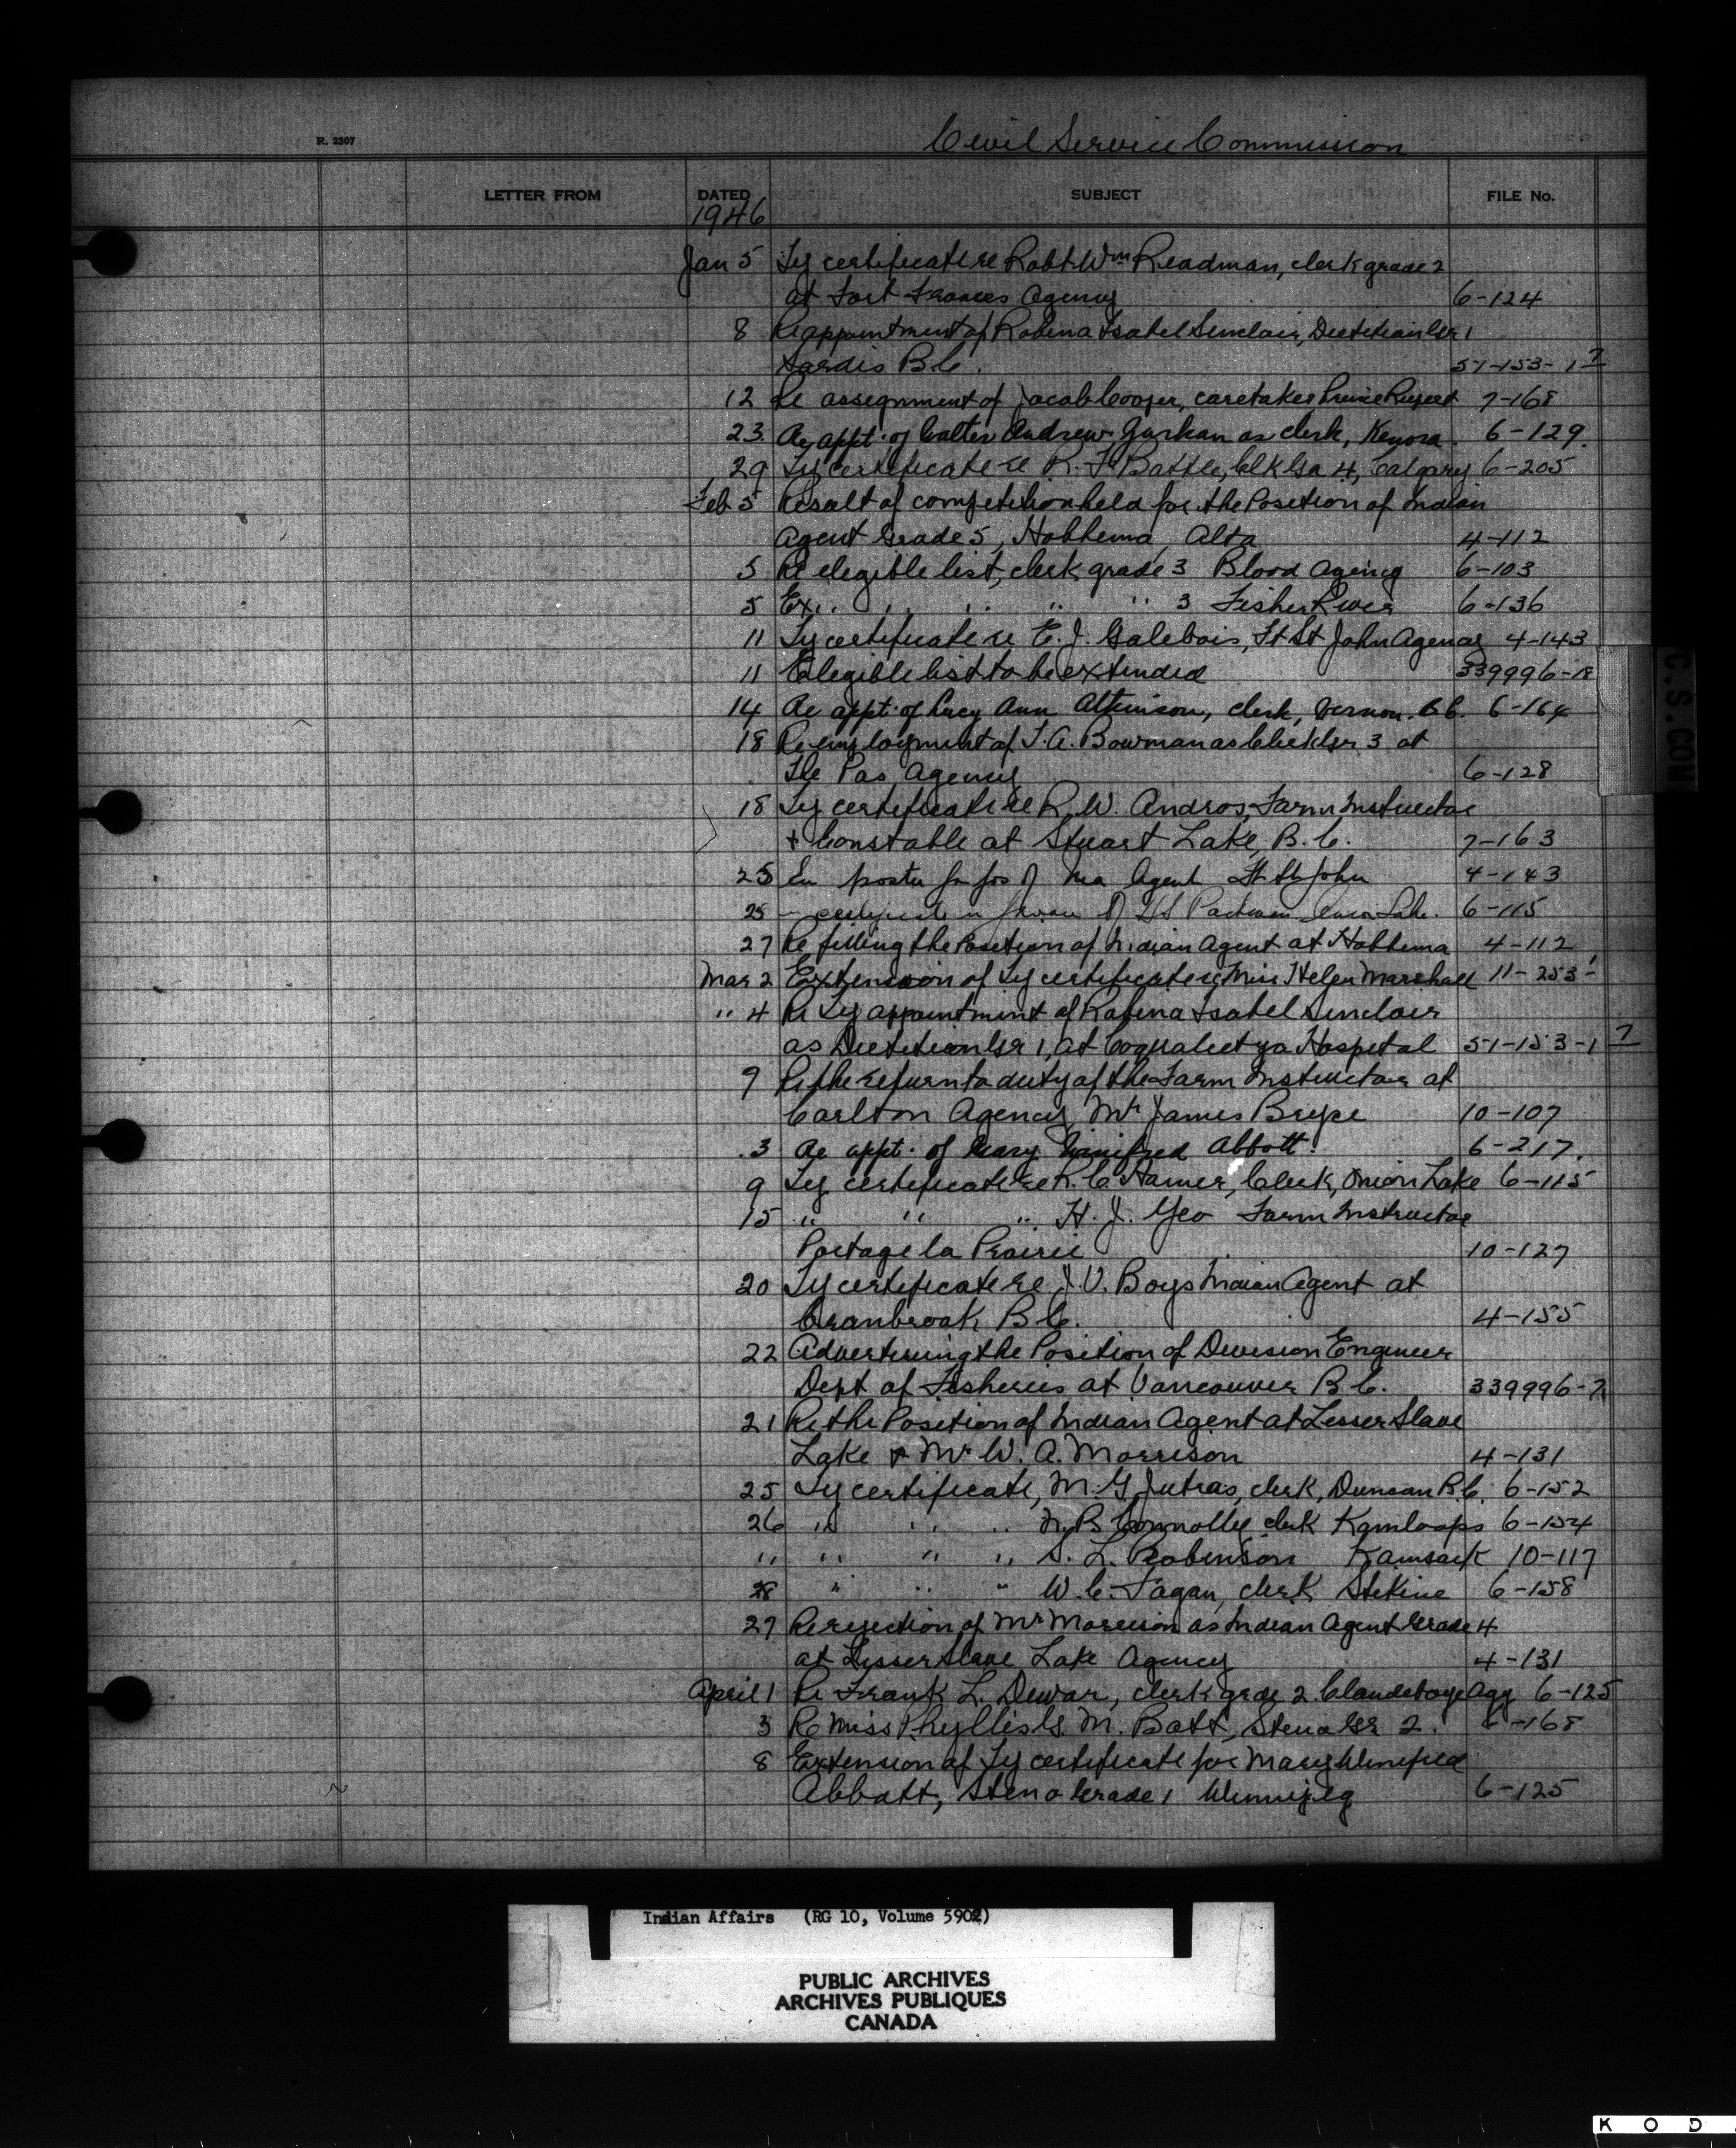 Civil Service Commission
R. 2307
LETTER FROM DATED SUBJECT FILE No.
1946
Jan 5 Ty certificate re Robt Wm Readman, clerk grade 2
at Fort Frances Agency 6-124
8 Re appointment of Robena Isabel Sinclair, Dietitian Gr 1
Sardis B.C. 51-153-1 7
12 Re assignment of Jacob Cooper, caretaker Prince Rupert 7-168
23 Re appt. of Walter Andrew as clerk, Kenora. 6-129.
29 Ty certificate re R. F. Battle, Clk Gr 4, Calgary 6-205
Feb 5 Result of competition held for the Position of Indian
Agent Grade 5, Hobbema, Alta 4-112
5 Re elegible list, clerk grade 3 Blood Agency 6-103
5 Ex.. " " " " 3 Fisher River 6-136
11 Ty certificate re E. J. Galebois, Ft St John Agency 4-143
11 Elegible list to be extended 339996-18
14 Re appt. of Lucy Ann Atkinson, clerk, Vernon. B.C. 6-164
18 Re employment of J. A. Bowman as Clerk Gr 3 at
The Pas Agency 6-128
18 Ty certificate re R. W. Andros, Farm Instructor
+ Constable at Stuart Lake, B.C. 7-163
25 poster for pos of Agent Ft St John 4-143
25 - certificate in favour of Lake. 6-115
27 Re filling the Position of Indian Agent at Hobbema 4-112
Mar 2 Extension of Ty certificate re Miss Helen Marshall 11-253-1
" 4 Re Ty appointment of Robena Isabel Sinclair
as Dietitian Gr 1, at Coqualeetza Hospital 51-153-1 7
9 Re the return to duty of the Farm Instructor at
Carlton Agency, Mr James Bryce 10-107
.3 Re appt. of Mary Winifred Abbott. 6-217.
9 Ty certificate re R. C. Hamer, Clerk, Onion Lake 6-115
15 " " " H. J. Yeo Farm Instructor
Portage la Prairie 10-127
20 Ty certificate re J. V. Boys Indian Agent at
Cranbrook B.C. 4-155
22 Advertising the Position of Division Engineer
Dept of Fisheries at Vancouver B.C. 339996-7
21 Re the Position of Indian Agent at Lesser Slave
Lake & Mr W. A. Morrison 4-131
25 Ty certificate, M. G. Jutras, clerk, Duncan B.C. 6-152
26 " " " N. B. Connolly clerk Kamloops 6-154
" " " " S. L. Robinson Kamsack 10-117
28 " " " W. C. Fagan, clerk Stikine 6-158
27 Re rejection of Mr Morrison as Indian Agent Grade 4
at Lesser Slave Lake Agency 4-131
April 1 Re Frank L. Dewar, clerk grade 2 Clandeboye Agy 6-125
3 Re Miss Phyllis G. M. Batt, Steno Gr 2. 6-168
8 Extension of Ty certificate for Mary Winifred
Abbott, Steno Grade 1 Winnipeg 6-125
C.S. COM
Indian Affairs (RG 10, Volume 5902)
PUBLIC ARCHIVES
ARCHIVES PUBLIQUES
CANADA
K O D